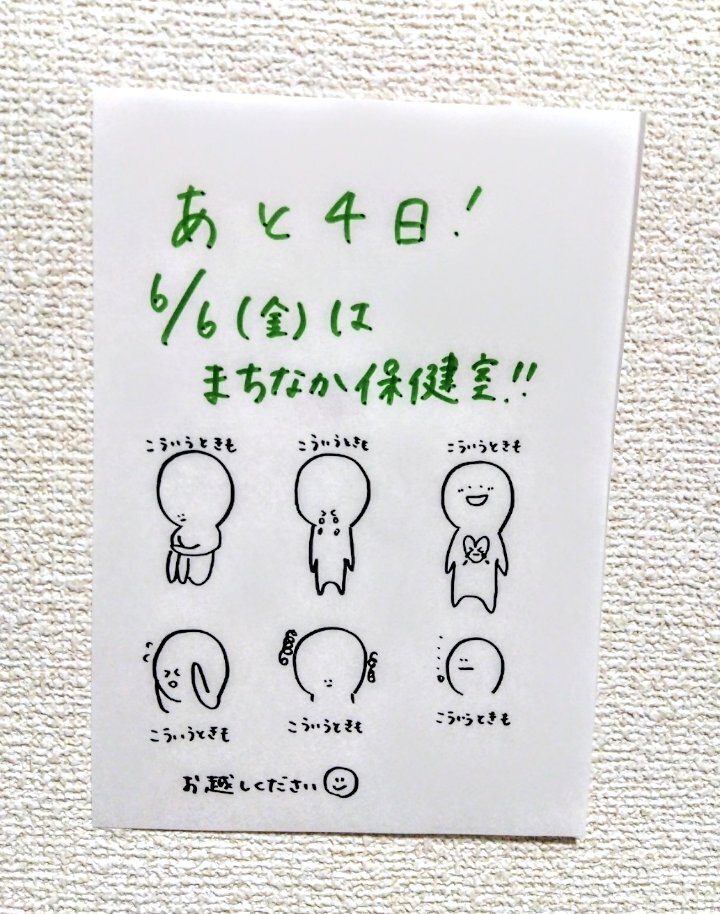 あと4日!
6/6(金)は
まちなか保健室!!
こういうときも
こういうときも
こういうときも
こういうときも
こういうときも
こういうときも
お越しください